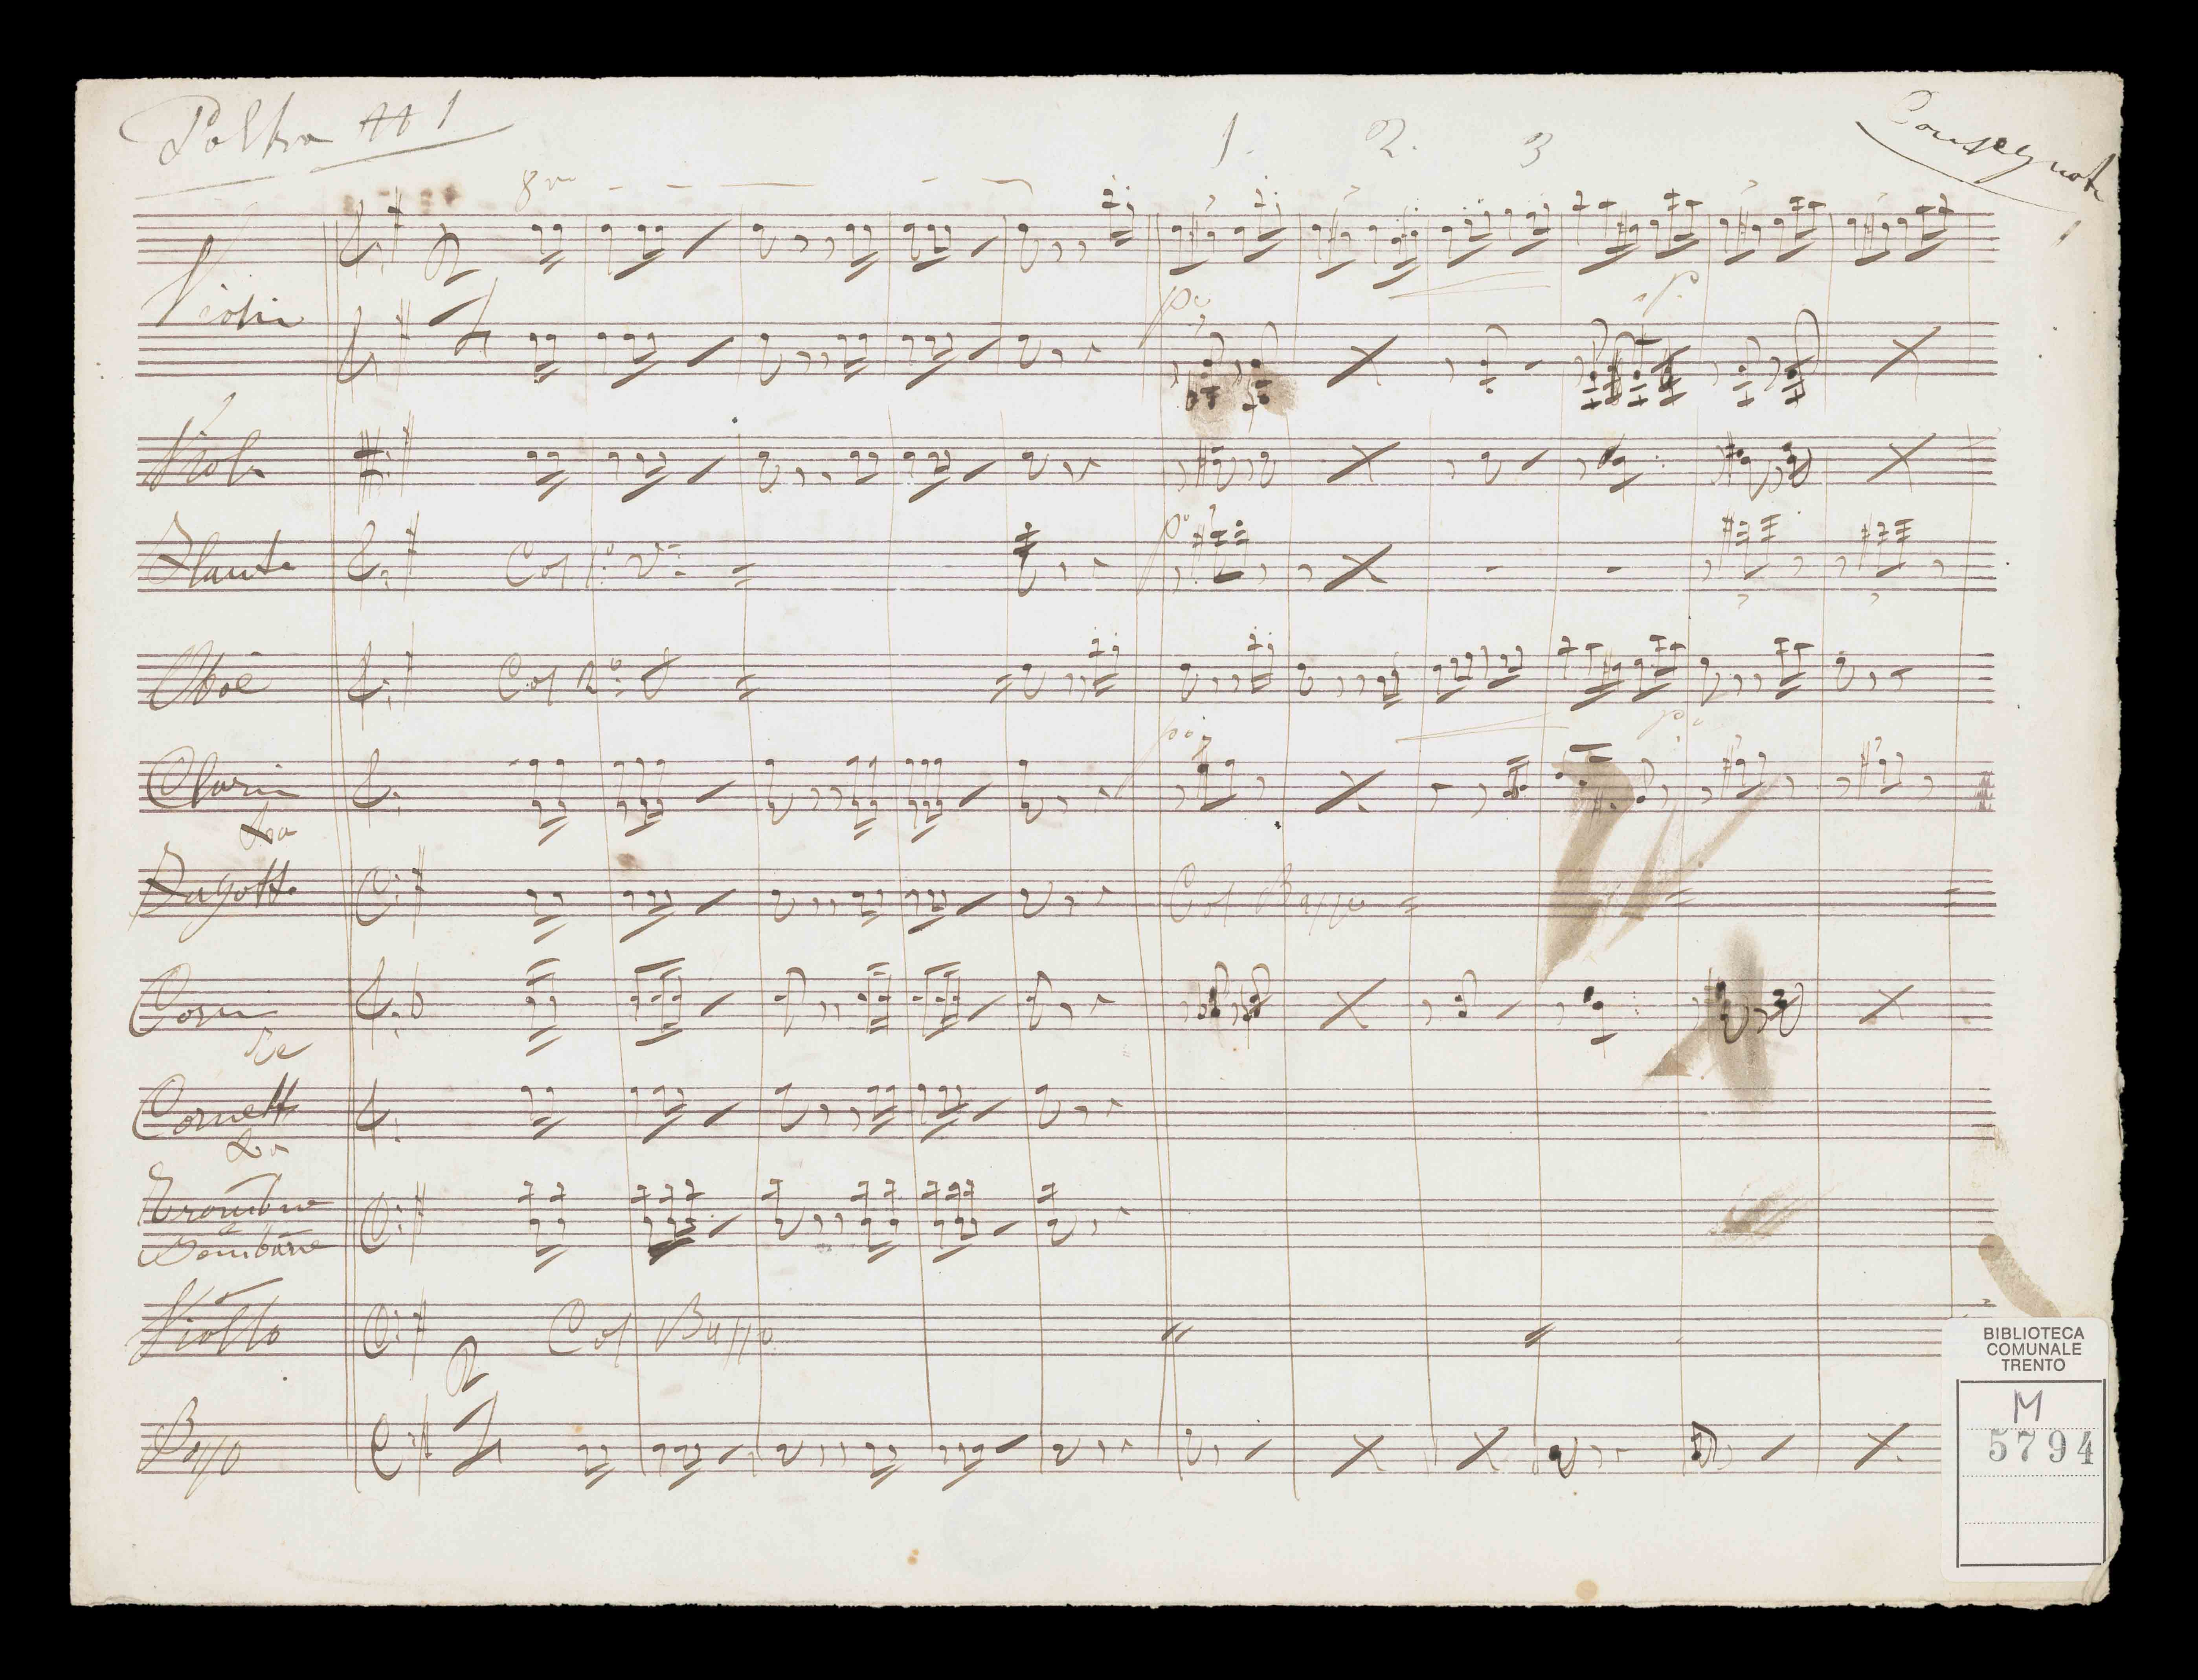 Polka N 1
Consegnata
1. 2. 3
8va
Violini
2
4
po
sf.
Viola
Flauto
Col 1o V.
po
Oboè
Col 2o V
Clarini
La
po
po
Fagotto
Col Basso
Corni
Re
Cornetti
La
Trombone
e
Bombone
Viollo
Col Basso
2
4
Basso
BIBLIOTECA
COMUNALE
TRENTO
M
5794